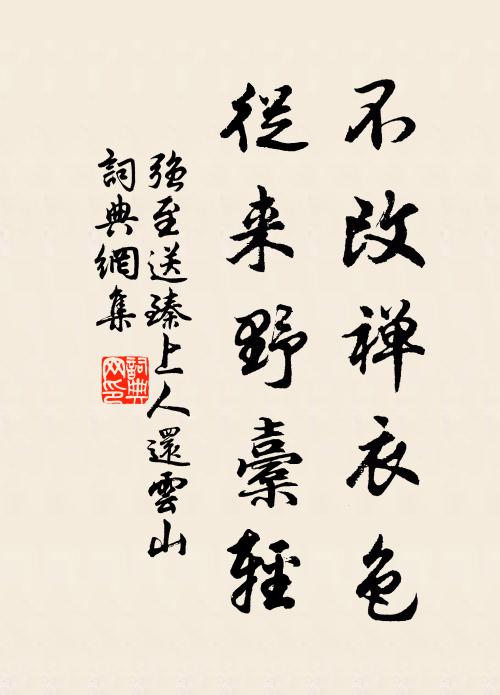 不改禅衣色
從来野橐輕
強至送臻上人還雲山
詞典網集
詞典網印